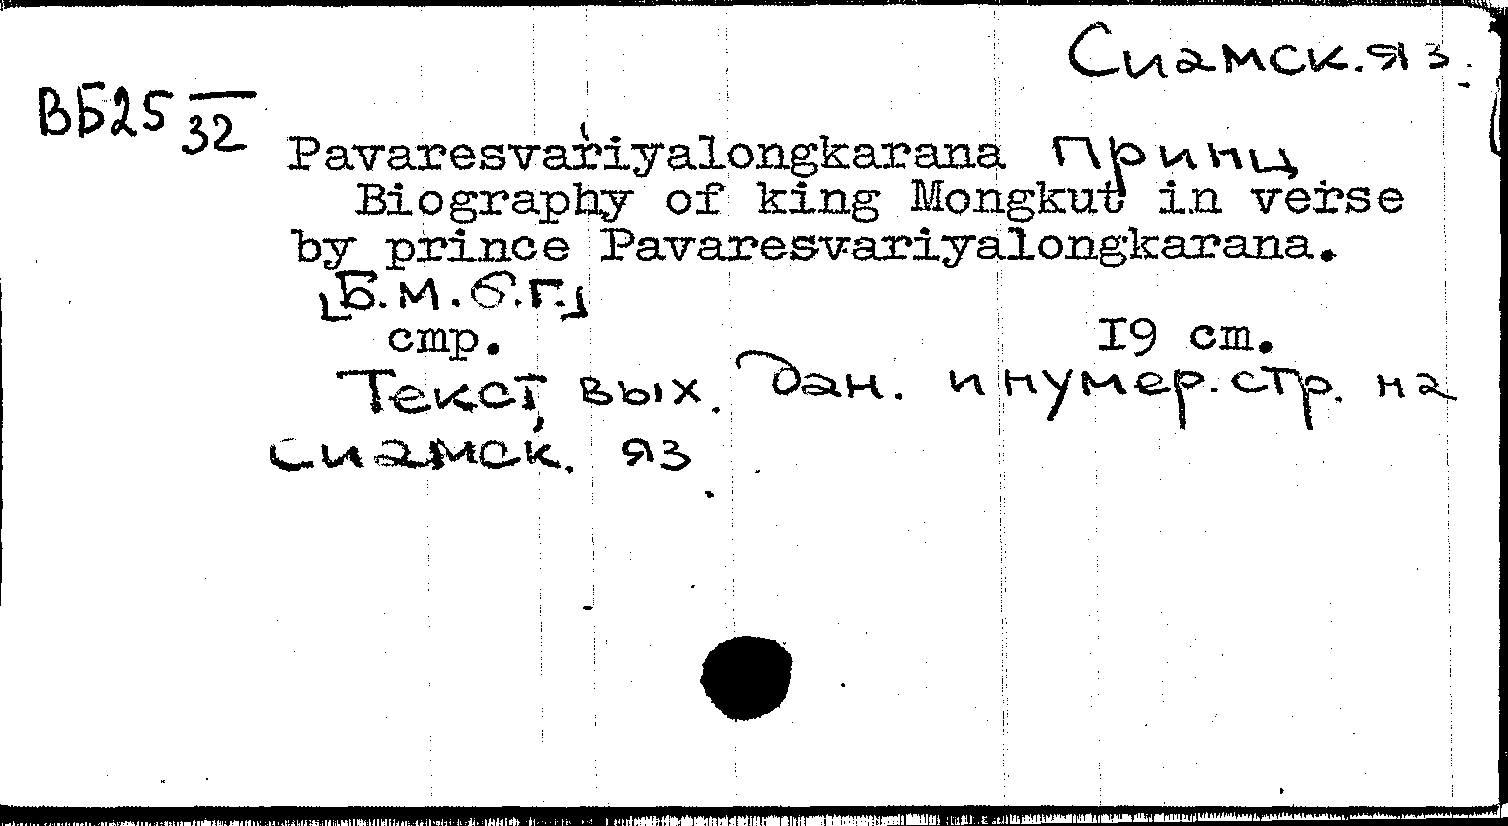 Сиамск. яз.
ВБ25 —/32
Pavaresvariyalongkarana принц
Biography of king Mongkut in verse
by prince Pavaresvariyalongkarana.
[Б.М. б.г.]
стр. 19 cm.
Текст, вых. дан. и нумер. стр. на
сиамск. яз